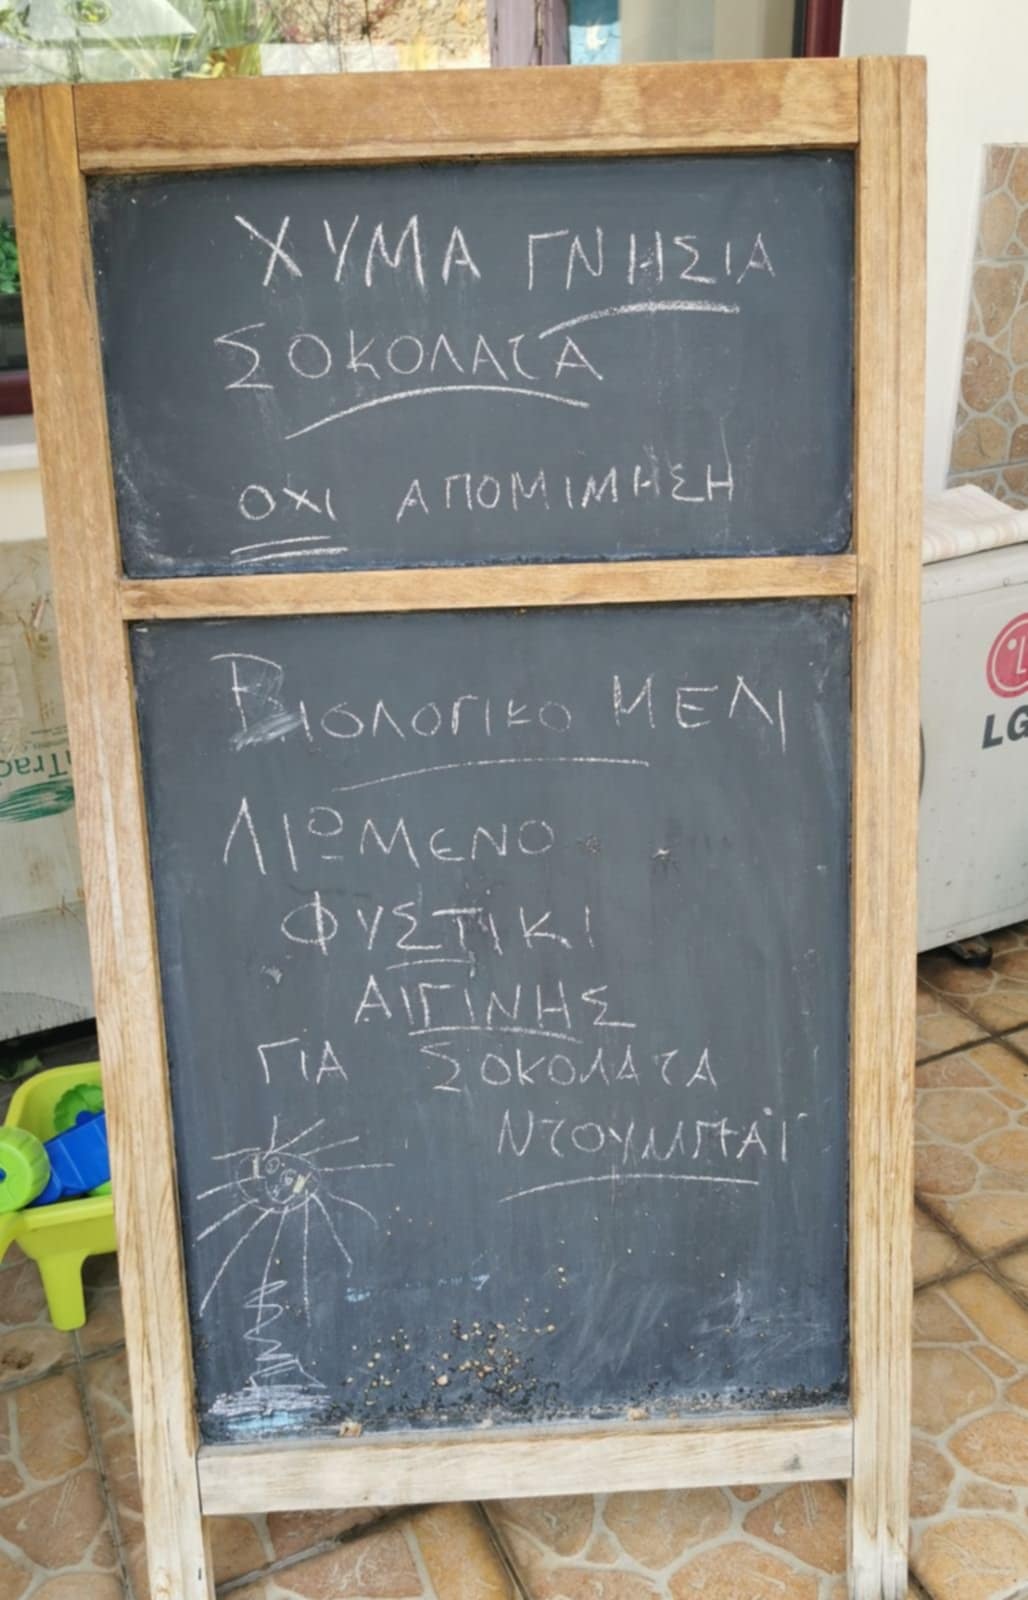 ΧΥΜΑ ΓΝΗΣΙΑ
ΣΟΚΟΛΑΤΑ
ΟΧΙ ΑΠΟΜΙΜΗΣΗ
ΒΙΟΛΟΓΙΚΟ ΜΕΛΙ
ΛΙΩΜΕΝΟ
ΦΥΣΤΙΚΙ
ΑΙΓΙΝΗΣ
ΓΙΑ ΣΟΚΟΛΑΤΑ
ΝΤΟΥΜΠΑΪ
LG